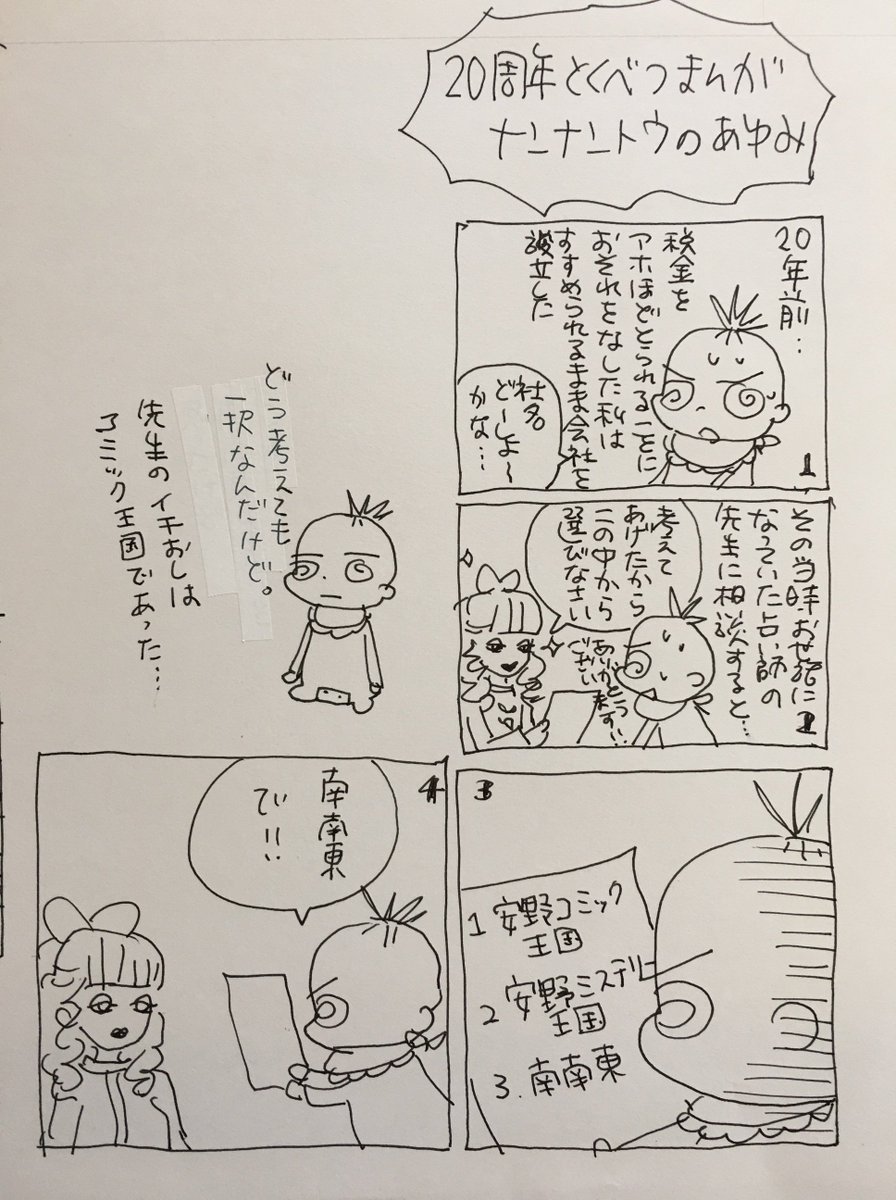 20周年とくべつまんが
ナンナントウのあゆみ
20年前…
税金を
アホほどとられることに
おそれをなした私は
すすめられるまま会社を
設立した
社名
どーしよ〜
かな…
1
その当時お世話に
なっていた占い師の
先生に相談すると…
2
考えて
あげたから
この中から
選びなさい
ありがとう
ございます…
3
1 安野コミック
王国
2 安野ミステリー
王国
3. 南南東
4
南南東
で!!
どう考えても
一択なんだけど。
先生のイチおしは
コミック王国であった…